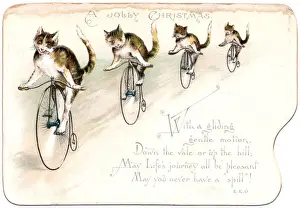 A JOLLY CHRISTMAS
With a gliding
gentle motion,
Down the vale or up the hill;
May Life's journey all be pleasant
May you never have a spill!